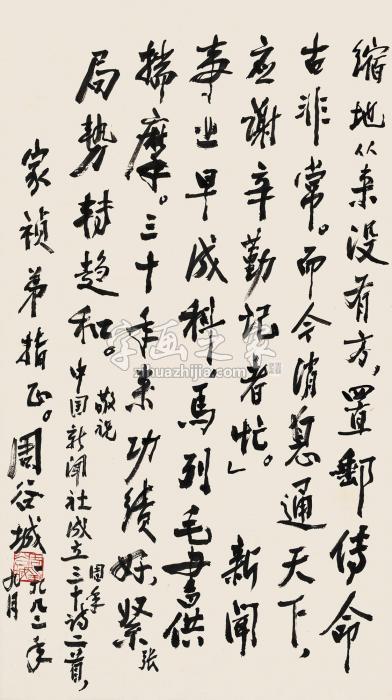 缩地从来没有方,置邮传命
古非常。而今消息通天下,
应谢辛勤记者忙。」 新闻
事业早成科,马列毛书供
揣摩。三十年来功绩好,紧张
局势转趋和。 敬祝
中国新闻社成立三十周年诗二首,
家祯弟指正。周谷城
一九八二年
九月
字画之家
zihuazhijia.com